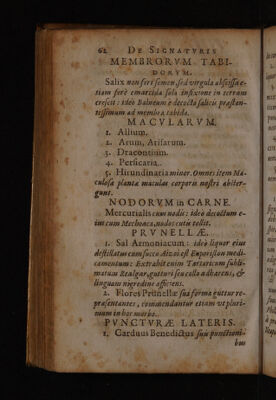 62 DE SIGNATVRIS
MEMBRORVM TABI-
DORVM.
Salix non fert semen, sed virgula abscissa e-
tiam ferè emarcida sola infixione in terram
crescit: ideò Balneum è decocto salicis præstan-
tissimum ad membra tabida.
MACVLARVM.
1. Allium.
2. Arum, Arisarum.
3. Dracontium.
4. Persicaria.
5. Hirundinaria minor. Omnes item Ma-
culosæ plantæ maculas corporis nostri abster-
gunt.
NODORVM in CARNE.
Mercurialis cum nodis: ideò decoctum e-
ius cum Mechoaca, nodos cutis tollit.
PRVNELLÆ.
1. Sal Armoniacum: ideò liquor eius
destillatus cum succo Aizoi est Euporiston medi-
camentum: Extrahit enim Tartaricum subli-
matum Realgar, gutturi seu collo adhærens, &
linguam nigredine afficiens.
2. Flores Prunellæ sua forma guttur re-
præsentantes, commendantur etiam vt pluri-
mum in hoc morbo.
PVNCTVRÆ LATERIS.
1. Carduus Benedictus suis punctioni-
bus